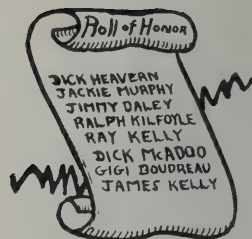 Roll of Honor
DICK HEAVERN
JACKIE MURPHY
JIMMY DALEY
RALPH KILFOYLE
RAY KELLY
DICK MCADOO
GIGI BOUDREAU
JAMES KELLY